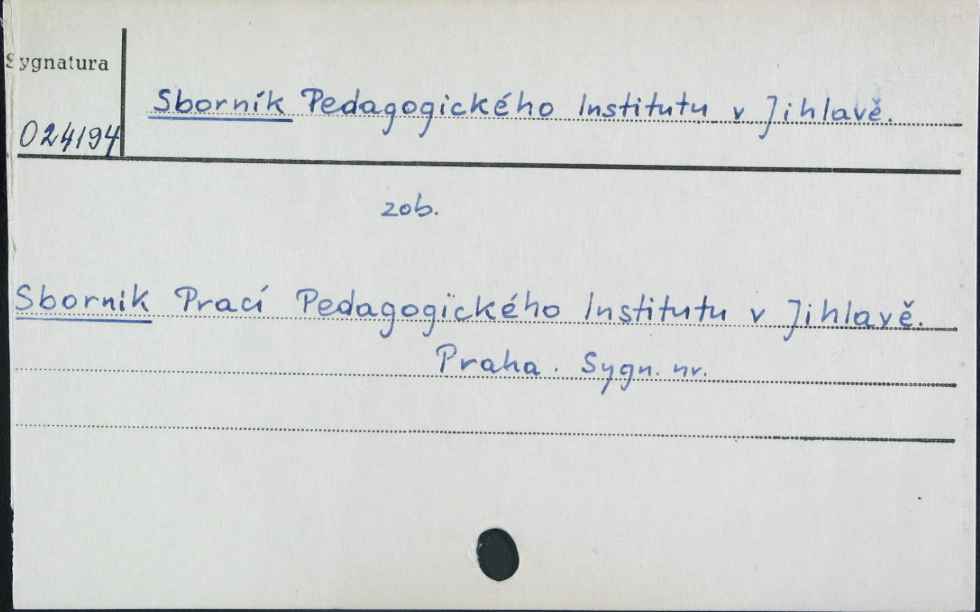 Sygnatura
Sborník Pedagogického Institutu v Jihlavě.
024194
zob.
Sborník Prací Pedagogického Institutu v Jihlavě.
Praha. Sygn. nr.